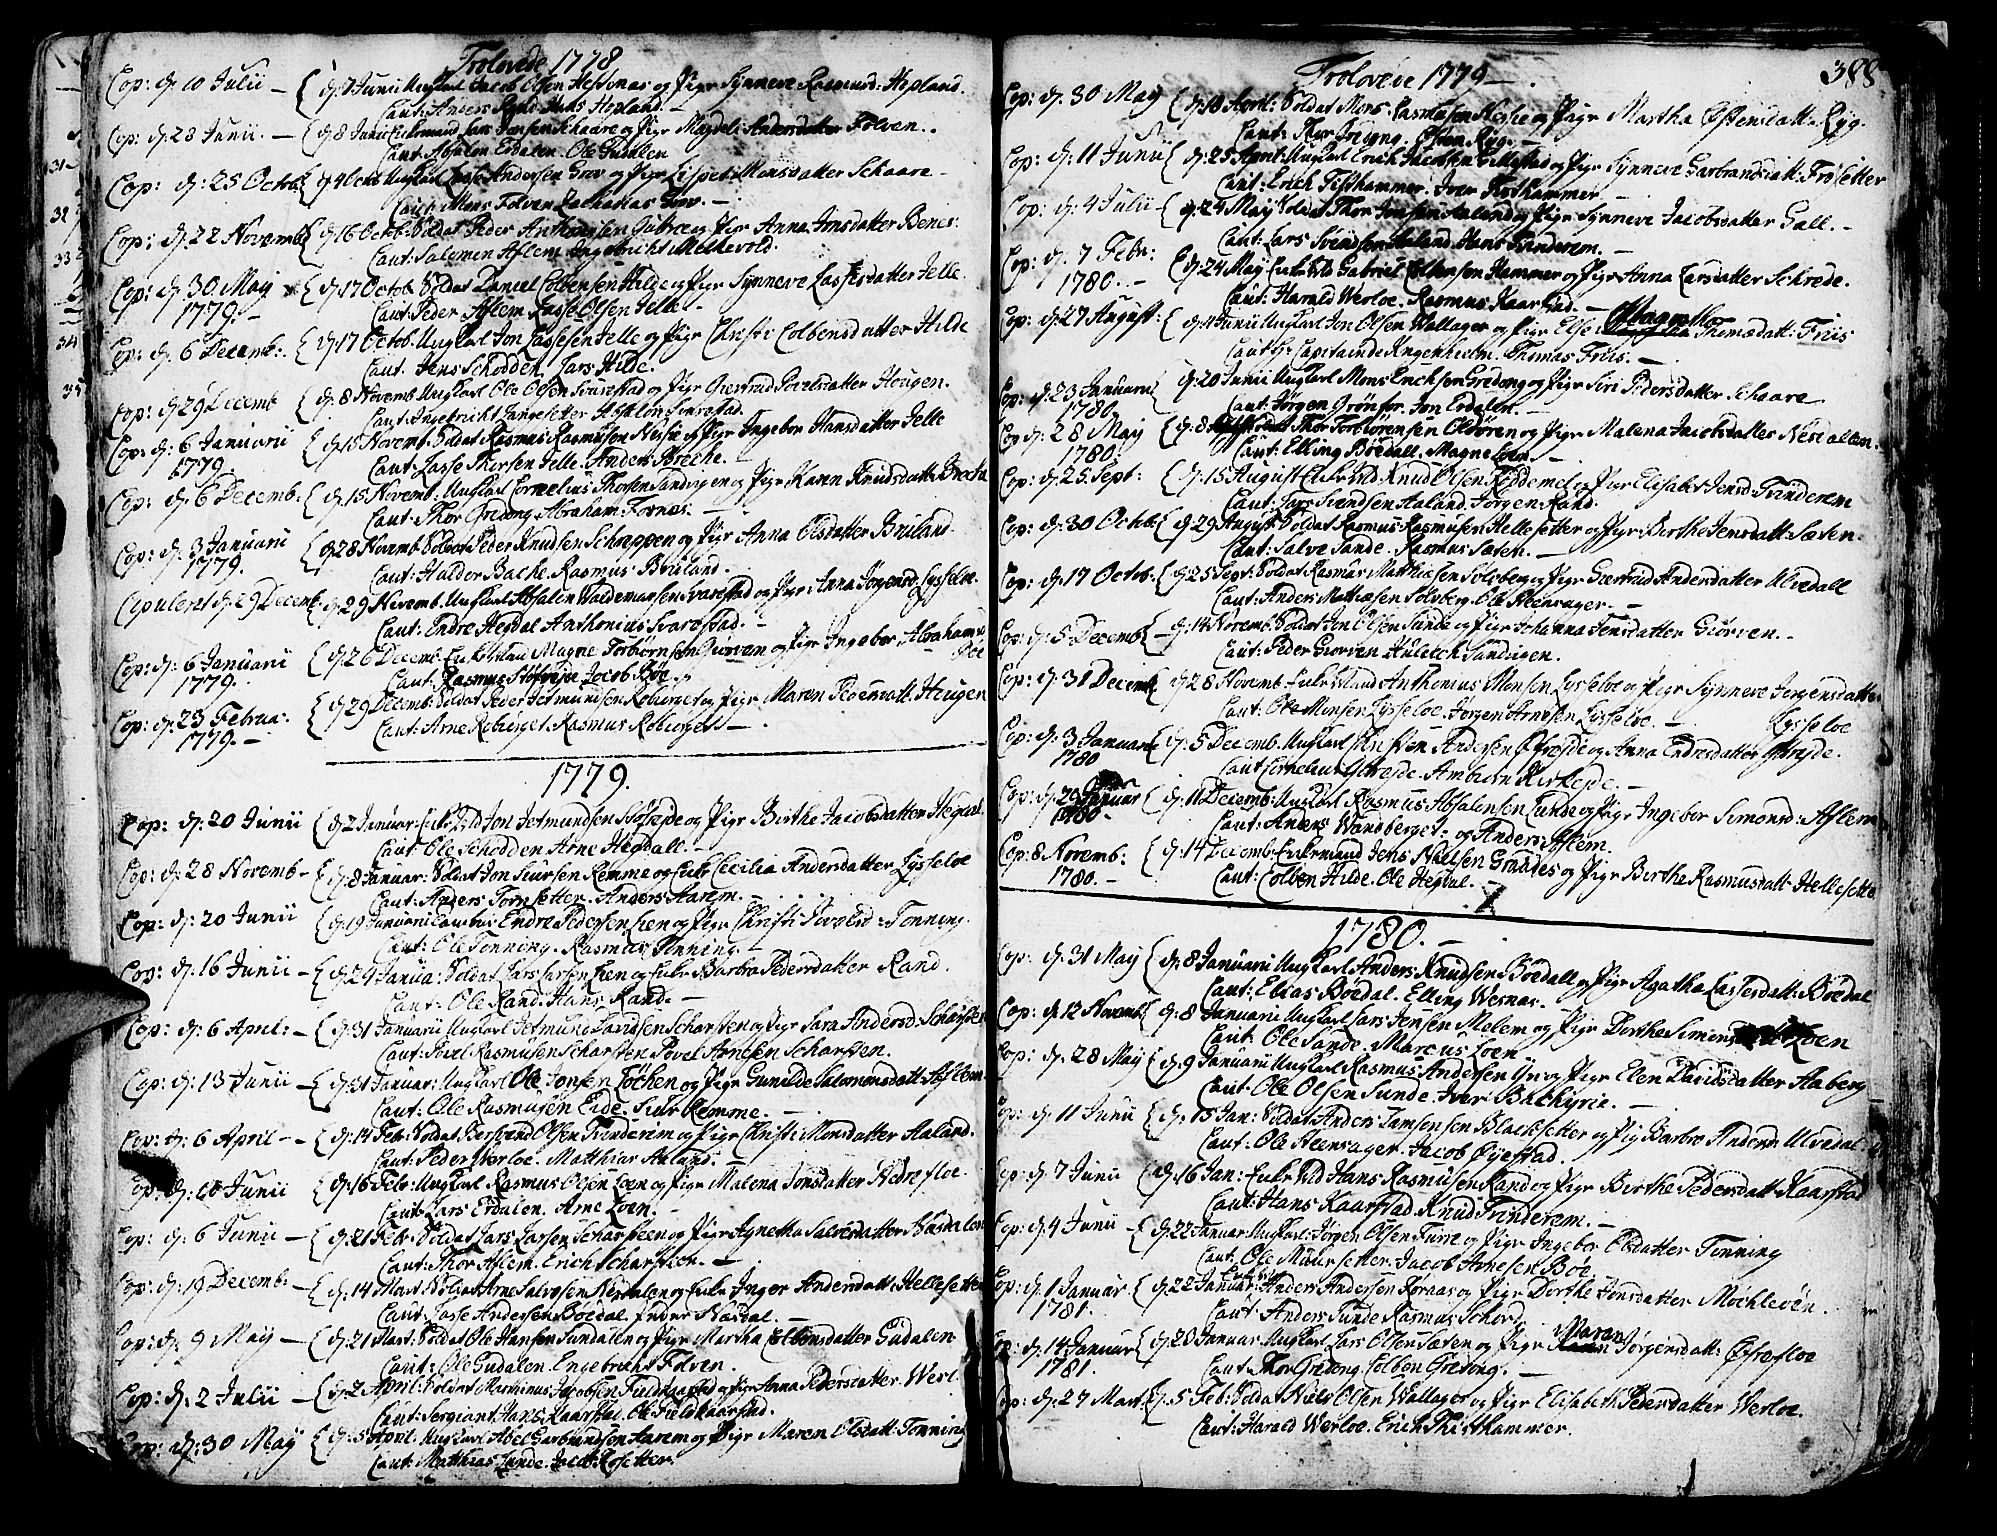 Trolovede 1778
Cop: d: 10 Julii – { d: 7 Junii Ungkarl Jacob Olsen Hessnas og Pige Synneve Rasmusd: Hopland.
Caut: Anders Rand Hans Hopland. –
Cop: d: 28 Junii. – { d 8 Junii Enkemand Lars Jonsen Schaare og Pige Magdeli Andersdatter Folven..
Caut: Absalon Erdalen. Ole Gudalen
Cop: d: 25 Octob: { d 4 Octob Ungkarl Lasse Andersen Grov og Pige Lisbet Monsdatter Schaare –
Caut: Mons Folven Zacharias Grov. –
Cop: d: 22 Novemb { d: 16 Octob: Soldat Peder Anthonsen og Pige Anna Arnsdatter Benes:
Caut: Salomon Aflem Ingebricht Melkevold.
Cop: d: 30 May { d: 17 Octob Soldat Daniel Colbensen Hilde og Pige Synneve Lassesdatter Jelle
1779. –
Caut: Peder Aflem Lasse Olsen Jelle. –
Cop: d: 6 Decemb: { d: 17 Octob. Ungkarl Jon Lassesen Jelle og Pige Christi Colbensdatter Hilde
Caut. Jens Schodden, Lars Hilde.
Cop: d 29 Decemb { d: 8 Novemb Ungkarl Ole Olsen Svarstad og Pige Giertrud Povelsdatter Hougen.
Caut: Ingebricht Langesetter Asklon Svarstad.
Cop: d: 6 Januarii { d: 15 Novemb: Soldat Rasmus Rasmusen Nesje og Pige Ingebor Hansdatter Jelle
1779.
Caut: Lasse Thorsen Jelle. Anders Breche. –
Cop: d: 6 Decemb. { d: 15 Novemb: Ungkarl Cornelius Thorsen Sandvigen og Pige Karen Knudsdatt: Breche
Caut: Thor Gredong Abraham Fosnæs. –
Cop: d: 3 Januarii { d 28 Novemb Soldat Peder Knudsen Schreppen og Pige Anna Olsdatter Bruland.
1779.
Caut: Haldor Balke. Rasmus Bruland. –
Copuleret d: 29 Decemb { d: 29 Novemb. Ungkarl Absalon Waldemarsen Svarestad og Pige: Anna Jørgensd: Lysseloe
Caut: Endre Hegdal Anthonius Svarestad. –
Cop: d: 6 Januarii { d 26 Decemb: Enkemand Magne Torbiørnsen Giørven og Pige Ingebor Abrahams:
1779.
Caut: Rasmus Støfreide Jacob Bøe. Bøe
Cop: d: 23 Februa: { d 29 Decemb: Soldat Peder Jetmundsen Roberget og Pige Maren Pedersdatt: Hougen
1779. –
Caut: Arne Roberget. Rasmus Roberget –
1779.
Cop: d: 20 Junii { d 2 Januar: Enk: Jon Jetmundsen Støfreide og Pige Birthe Jacobsdatter Hegdal.
Caut Ole Schodden Arne Hegdall. –
Cop: d: 28 Novemb – { d 8 Januar: Soldat Jon Siursen Remme og Enke Cecilia Andersdatter Lysseloe
Caut: Anders Tornsetter. Anders Aarem. –
Cop: d: 20 Junii { d: 19 Januarii Endre Pedersen Lien og Pige Christi Povelsd: Tonning.
Caut: Ole Tonning. Rasmus Tonning. –
Cop: d: 16 Junii – { d: 24 Janua: Soldat Lars Larsen Lien og Enke Barbra Pedersdatter Rand.
Caut: Ole Rand. Hans Rand. –
Cop: d: 6 April: – { d: 31 Januarii Ungkarl Jetmund Davidsen Scharsten og Pige Sara Andersd: Scharsten
Caut: Povel Rasmusen Scharsten Povel Arnesen Scharsten.
Cop: d: 13 Junii – { d: 31 Januar: Ungkarl Ole Jonsen Løchen og Pige Gunilde Salomonsdatt: Aflem.
Caut: Ole Rasmusen Eide. Siur Remme. –
Cop: d: 6 April – { d: 14 Feb: Soldat Bersvend Olsen Tvinderim og Pige Christi Monsdatter Haland.
Caut: Peder Werloe. Matthias Haland. –
Cop: d: 16 Junii { d: 16 Feb: Ungkarl Rasmus Olsen Loen og Pige Malena Jonsdatter Nedrefloe.
Caut: Lars Erdalen. Arne Loen. –
Cop: d: 6 Junii – { d: 21 Feb: Soldat Lars Larsen Scharsteen og Pige Agnetha Salvesdatter Næsdalen
Caut: Thor Aflem. Erich Scharsteen. –
Cop: d: 19 Decemb: – { d: 14 Mart: Soldat Arne Salvesen Nesdalen og Enke Inger Andersdatt: Hellesetter
Caut: Lasse Andersen Bøedal. Endre Næsdal. –
Cop: d: 9 May – { d: 21 Mart: Soldat Ole Hansen Sundalen og Pige Martha Colbensdatter Gudalen
Caut: Ole Gudalen. Engebricht Folven.
Cop: d: 2 Julii – { d: 2 April: Soldat Matthias Jacobsen Fieldkaarstad og Pige Anna Pedersdatter Werl:
Caut: Sergiant Hans Kaarstad. Ole Fieldkaarstad.
Cop: d: 30 May { d: 5 April. Ungkarl Abel Garbrandsen Aarem og Pige Maren Olsdatt: Tonning
Caut: Matthias Sunde. Jacob Rosetter.
Trolovede 1779 –
388
Cop: d: 30 May { d: 18 April: Soldat Mons Rasmusen Nesje og Pige Martha Østensdatt: Ryg.
Caut: Thor Østen Ryg. –
Cop: d: 11 Junii { d: 25 April: Ungkarl Erich Jacobsen Gimestad og Pige Synneve Garbrandsdatt: Frøsetter
Caut: Erich Tisthammer. Iver Tisthammer –
Cop: d: 4 Julii – { d: 24 May Soldat Thor Jonsen Haland og Pige Synneve Jacobsdatter Gall. –
Caut: Lars Svendsen Haland. Hans Tvinderem. –
Cop: d: 7 Febr: { d: 24 May Enke Gabriel Colbensen Hammer og Pige Anna Larsdatter Schrede.
1780. –
Caut: Harald Werloe. Rasmus Kaarstad. –
Cop: d: 27 August: { d: 4 Junii Ungkarl Jon Olsen Wallager og Pige Else Magretha Thomsdatt: Friis
Caut: Hr Capitain de Knagenhielm. Thomas Friis. –
Cop: d: 23 Januarii { d: 20 Junii Ungkarl Mons Erichsen Gredong og Pige Siri Pedersdatter Schaare
1780
Caut: Jørgen Grønfor. Jon Erdalen. –
Cop d: 28 May { d: 8 Soldat Thor Torbiørensen Oldøren og Pige Malena Jacobsdatter Nesdallen.
1780.
Caut: Elling Bøedall. Magne Loen. –
Cop: d: 25 Sept: { d: 15 August Enke Knud Olsen Roddemel og Pige Elisabet Jensd: Tvinderem
Caut: Lars Svendsen Haland. Jørgen Rand.
Cop: d: 30 Octob: { d: 29 August: Soldat Rasmus Rasmusen Hellesetter og Pige Birthe Jensdatt: Sæten.
Caut: Salve Sande. Rasmus Sæten. –
Cop: d: 17 Octob: { d 25 Sept: Soldat Rasmus Matthiesen Solvberg og Pige Giertrud Andersdatter Ulvedall
Caut: Anders Mathiesen Solvberg. Ole Heensager. –
Cop: d: 5 Decemb { – d: 14 Novemb: Soldat Jon Olsen Sunde og Pige Johanna Jensdatter Giørven..
Caut: Peder Giørven Huletch Sandvigen.
Cop: d: 31 Decemb { d 28 Novemb: Enkemand Anthonius Monsen Lysseloe og Pige Synneve Jørgensdatter
Caut: Ole Monsen Lysseloe. Jørgen Arnesen Lysseloe. – Lysseloe
Cop: d: 3 Januarii { d: 5 Decemb. Ungkarl Christen Andersen Ytreeide og Anna Endresdatter Ytreeide.
1780
Caut Cornelius Ytreeide. Ambiørn Kirkeide. –
Cop: d: 29 Januar { d: 11 Decemb: Ungkarl Rasmus Absalonsen Lunde og Pige Ingebor Simonsd: Aflem
1780.
Caut: Anders Wandberget: og Anders Aflem.
Cop: 8 Novemb: { d: 14 Decemb: Enkemand Jens Nielsen Graddes og Pige Birtha Rasmusdatt: Hellesette
1780. –
Caut: Colben Hilde. Ole Hegdal. –
1780. –
Cop: d: 31 May { d: 8 Januarii Ungkarl Anders Knudsen Bøedall og Pige Agatha Lassesdatt: Bøedal
Caut: Elias Bøedal. Elling Wesnas.
Cop: d: 12 Novemb { d: 8 Januarii Ungkarl Lars Jensen Melem og Pige Dorthe Simons Loen
Caut. Ole Sande. Marcus Loen
Cop: d: 28 May { d: 9 Januarii Ungkarl Rasmus Andersen Yri og Pige Elen Davidsdatter Aaberg
Caut: Ole Olsen Sunde. Iver Bachyrie. –
Cop: d: 11 Junii { d: 15 Jan: Soldat Anders Jamsensen Blacksetter og Pig Barbro Andersd Ulvedal
Caut: Ole Heensager. Jacob Øyestad.
Cop: d: 7 Junii { d: 16 Jan: Enke Hans Rasmusen Rand og Pige Birthe Pedersdatt: Kaarstad
Caut: Hans Kaarstad. Knud Tvinderem. –
Cop: d: 4 Junii – { d: 22 Januar Ungkarl: Jørgen Olsen Furre og Pige Ingebor Olsdatter Tonning
Caut: Ole Muursetter. Jacob Arnesen Bøe
Cop: d: 1 Januar { d: 22 Januar: Anders Andersen Fornæs og Pige Dorthe Jonsdatter Mochlevøn.
1781.
Caut: Anders Sunde Rasmus Schord.
Cop: d: 14 Januar { d: 28 Januar Ungkarl Lars Olsen Sæten og Pige Maren Jørgensdatt: Østrefloe
1781.
Caut: Thor Gredong. Colben Gredong. –
Cop: d: 27 Mart { d: 5 Feb: Soldat Niels Olsen Wallager og Pige Elisabeth Pedersdatter Werloe.
Caut: Harald Werloe. Erich Thisthammer.